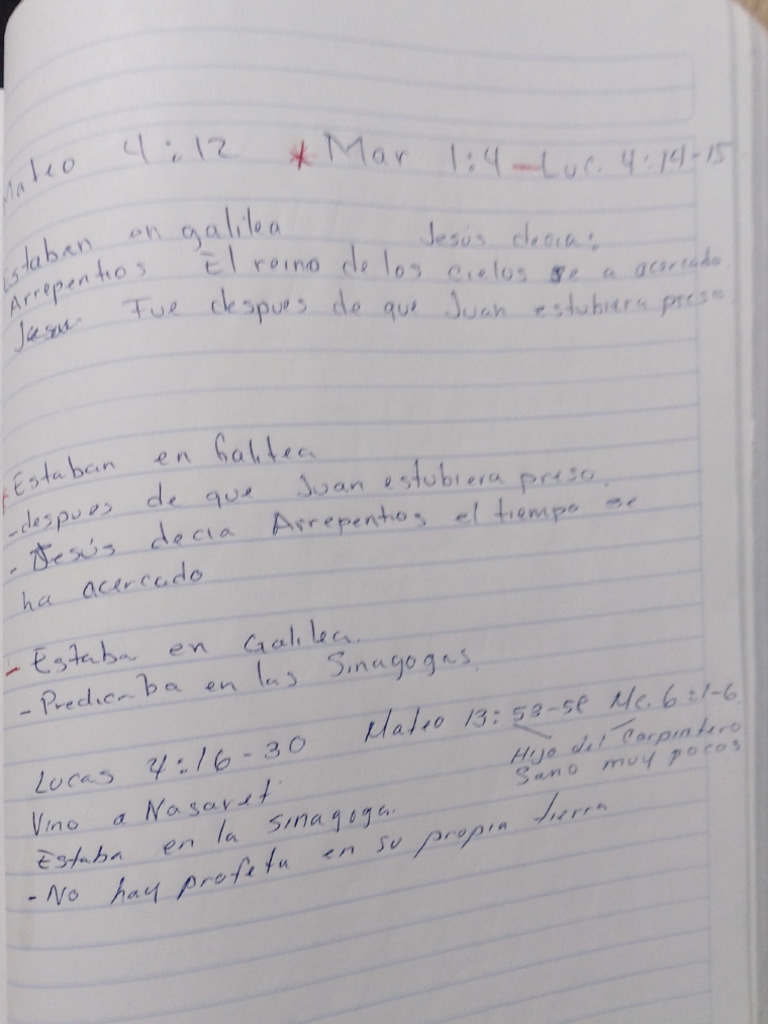 Mateo 4:12 * Mar 1:4 - Luc. 4:14-15
Estaban en galilea Jesús decia:
Arrepentios El reino de los cielos se a acercado
Fue despues de que Juan estubiera preso
* Estaban en Galilea
- despues de que Juan estubiera preso.
- Jesús decia Arrepentios el tiempo se
ha acercado
- Estaba en Galilea.
- Predicaba en las Sinagogas.
Lucas 4:16-30 Mateo 13:53-58 Mc. 6:1-6
Hijo del Carpintero
Vino a Nasaret. Sano muy pocos
Estaba en la sinagoga.
- No hay profeta en su propia tierra